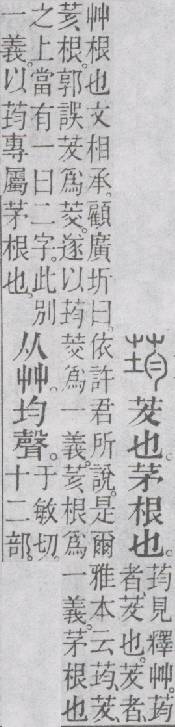 荺茇也。茅根也。
荺見釋艸。荺
者、茇也。茇者、
艸根也文相承。顧廣圻曰。依許君所說。是爾雅本云荺、茇、
荄根。郭誤茇爲茭。遂以荺茭爲一義。荄根爲一義。茅根也
之上當有一曰二字。此別
一義。以荺專屬茅根也。
从艸均聲。
于敏切。
十二部。